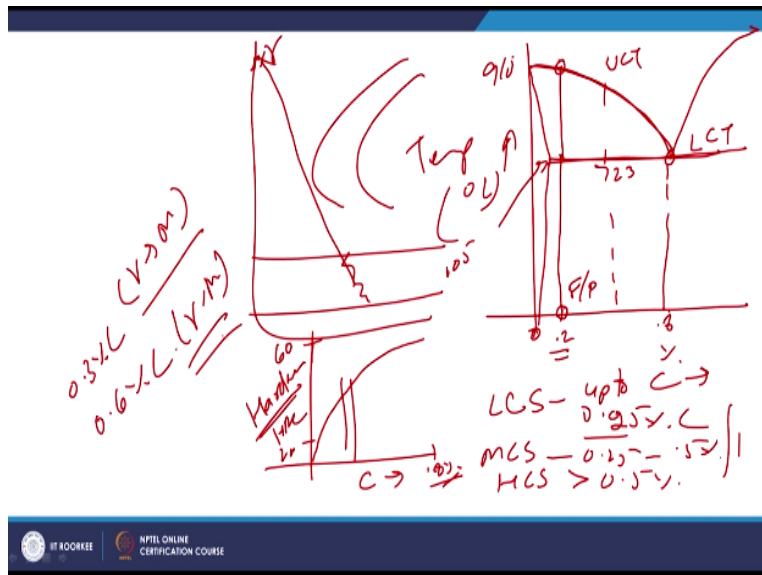 910
UCT
Temp ↑
(°C)
LCT
723
.105
F/P
0.3%C (γ→M)
0.6%C (γ→M)
0
.2
.8
%
60
Hardness
HRC
20
C →
.8%
C →
LCS – upto 0.25%C
MCS – 0.25 – .5%
HCS > 0.5%
IIT ROORKEE
NPTEL ONLINE
CERTIFICATION COURSE